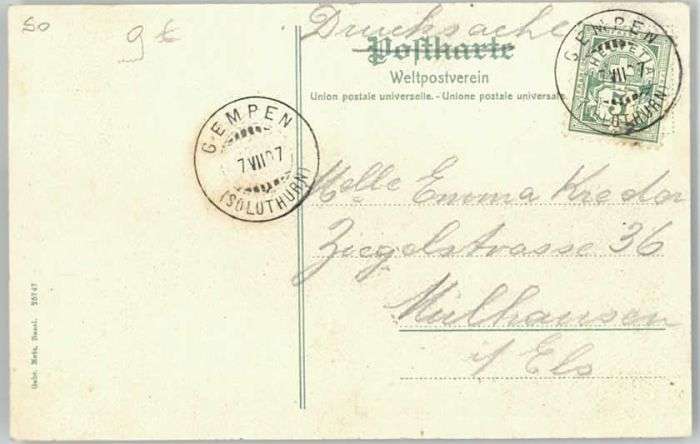 So
9 £
Drucksache
Postkarte
Weltpostverein
Union postale universelle. - Unione postale universale
GEMPEN
7 VII 07
(SOLOTHURN)
GEMPEN
VII 07
(SOLOTHURN)
5
Melle Emma Kreder
Ziegelstrasse 36
Mülhausen
i/Els
Gebr. Metz, Basel. 25747